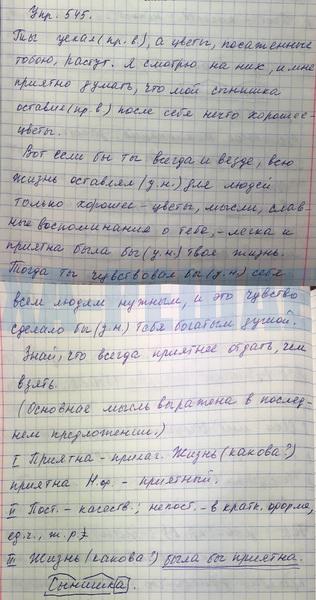 Упр. 545.
Ты уехал (пр.в), а цветы, посаженные
тобою, растут. Я смотрю на них, и мне
приятно думать, что мой сынишка
оставил (пр.в) после себя нечто хорошее -
цветы.
Вот если бы ты всегда и везде, всю
жизнь оставлял (у.н.) для людей
только хорошее - цветы, мысли, слав-
ные воспоминания о тебе, - легка и
приятна была бы (у.н.) твоя жизнь.
Тогда ты чувствовал бы (у.н.) себя
всем людям нужным, и это чувство
сделало бы (у.н.) тебя богатым душой.
Знай, что всегда приятнее отдать, чем
взять.
(Основная мысль выражена в послед-
нем предложении.)
I Приятна - прилаг. Жизнь (какова?)
приятна Н.ф. - приятный.
II Пост. - качеств.; непост. - в кратк. форме,
ед.ч., ж.р.
III Жизнь (какова?) была бы приятна.
Сынишка.